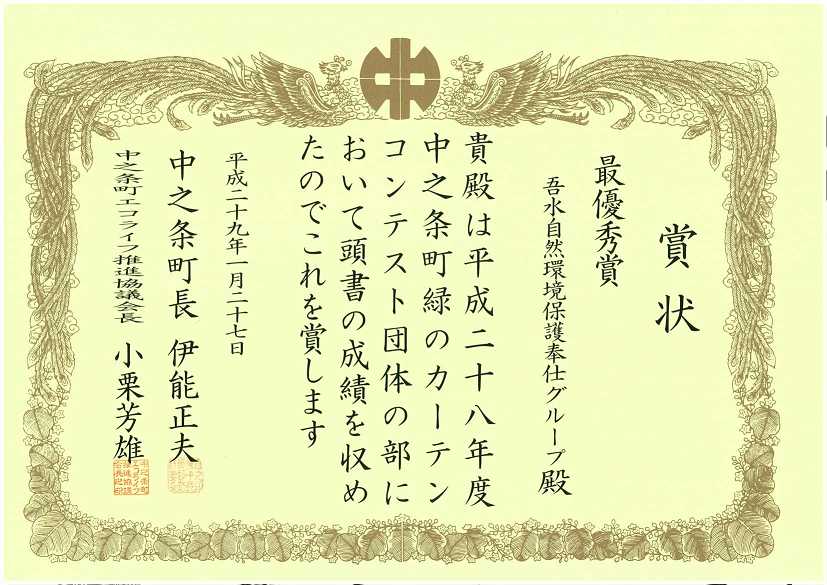 賞状
最優秀賞
吾水自然環境保護奉仕グループ殿
貴殿は平成二十八年度
中之条町緑のカーテン
コンテスト団体の部に
おいて頭書の成績を収め
たのでこれを賞します
平成二十九年一月二十七日
中之条町長 伊能正夫
中之条町エコライフ推進協議会長 小栗芳雄